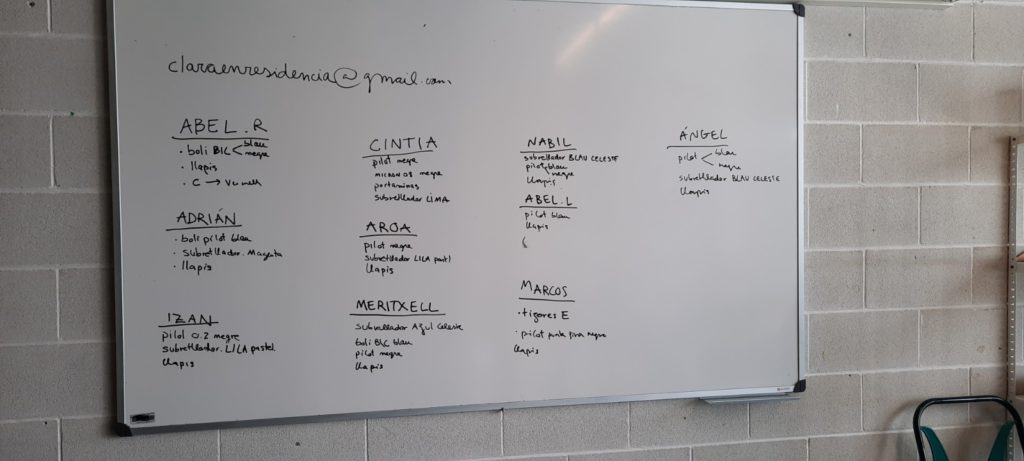 claraenresidencia@gmail.com
ABEL.R
• boli BIC < blau
negre
• llapis
• C → Vermell
ADRIÁN
• boli pilot blau
• subratllador. Magenta
• llapis
IZAN
pilot 0.2 negre
subratllador. LILA pastel
llapis
CINTIA
pilot negre
MICRON 05 negre
portamines
subratllador LIMA
AROA
pilot negre
subratllador LILA pastel
llapis
MERITXELL
subratllador Azul Celeste
boli BIC blau
pilot negre
llapis
NABIL
subratllador BLAU CELESTE
pilot blau
negre
llapis
ABEL.L
pilot blau
llapis
MARCOS
• tigores E
• pilot punta fina negre
llapis
ÁNGEL
pilot < blau
negre
subratllador BLAU CELESTE
llapis